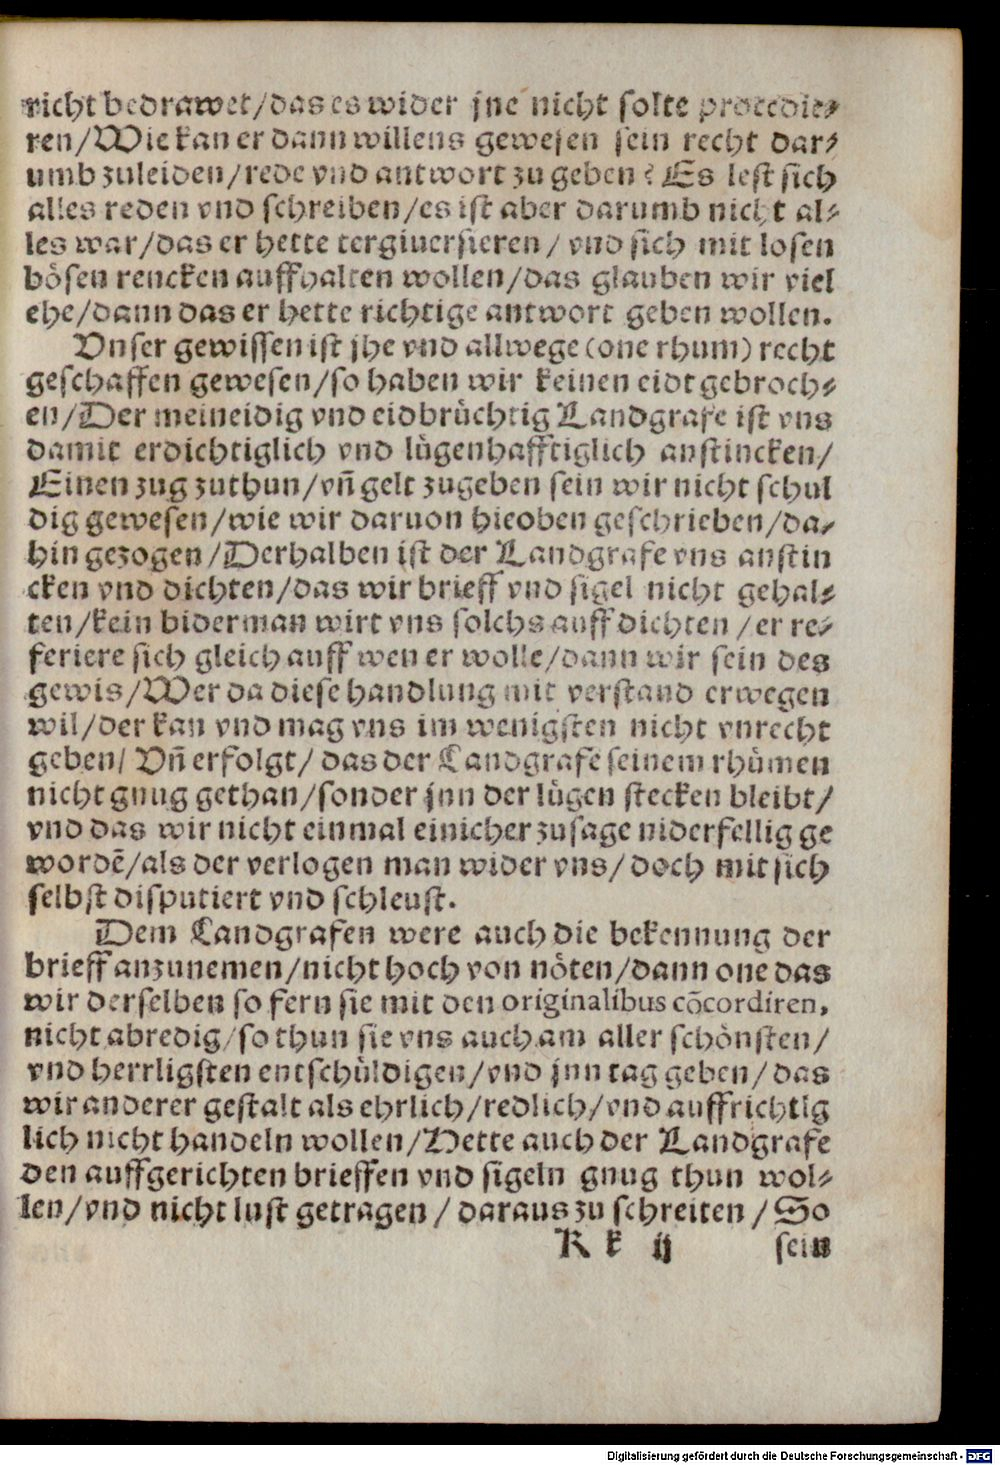 richt bedrawet/das es wider jne nicht solte procedie⸗
ren/Wie kan er dann willens gewesen sein recht dar⸗
umb zuleiden/rede vnd antwort zu geben? Es lest sich
alles reden vnd schreiben/es ist aber darumb nicht al⸗
les war/das er hette tergiuersieren/ vnd sich mit losen
bösen rencken auffhalten wollen/das glauben wir viel
ehe/dann das er hette richtige antwort geben wollen.
Vnser gewissen ist jhe vnd allwege (one rhum) recht
geschaffen gewesen/so haben wir keinen eidt gebroch⸗
en/Der meineidig vnd eidbrüchtig Landgrafe ist vns
damit erdichtiglich vnd lügenhafftiglich anstincken/
Einen zug zuthun/vñ gelt zugeben sein wir nicht schul
dig gewesen/wie wir daruon hieoben geschrieben/da⸗
hin gezogen/Derhalben ist der Landgrafe vns anstin
cken vnd dichten/das wir brieff vnd sigel nicht gehal⸗
ten/kein biderman wirt vns solchs auff dichten/er re⸗
feriere sich gleich auff wen er wolle/dann wir sein des
gewis/Wer da diese handlung mit verstand erwegen
wil/der kan vnd mag vns im wenigsten nicht vnrecht
geben/ Vñ erfolgt/ das der Landgrafe seinem rhümen
nicht gnug gethan/sonder jnn der lügen stecken bleibt/
vnd das wir nicht einmal einicher zusage niderfellig ge
wordē/als der verlogen man wider vns/ doch mit sich
selbst disputiert vnd schleust.
Dem Landgrafen were auch die bekennung der
brieff anzunemen/nicht hoch von nöten/dann one das
wir derselben so fern sie mit den originalibus cõcordiren,
nicht abredig/so thun sie vns auch am aller schönsten/
vnd herrligsten entschüldigen/vnd jnn tag geben/ das
wir anderer gestalt als ehrlich/redlich/vnd auffrichtig
lich nicht handeln wollen/Hette auch der Landgrafe
den auffgerichten brieffen vnd sigeln gnug thun wol⸗
len/vnd nicht lust getragen/ daraus zu schreiten/So
K k ij sein
Digitalisierung gefördert durch die Deutsche Forschungsgemeinschaft - DFG